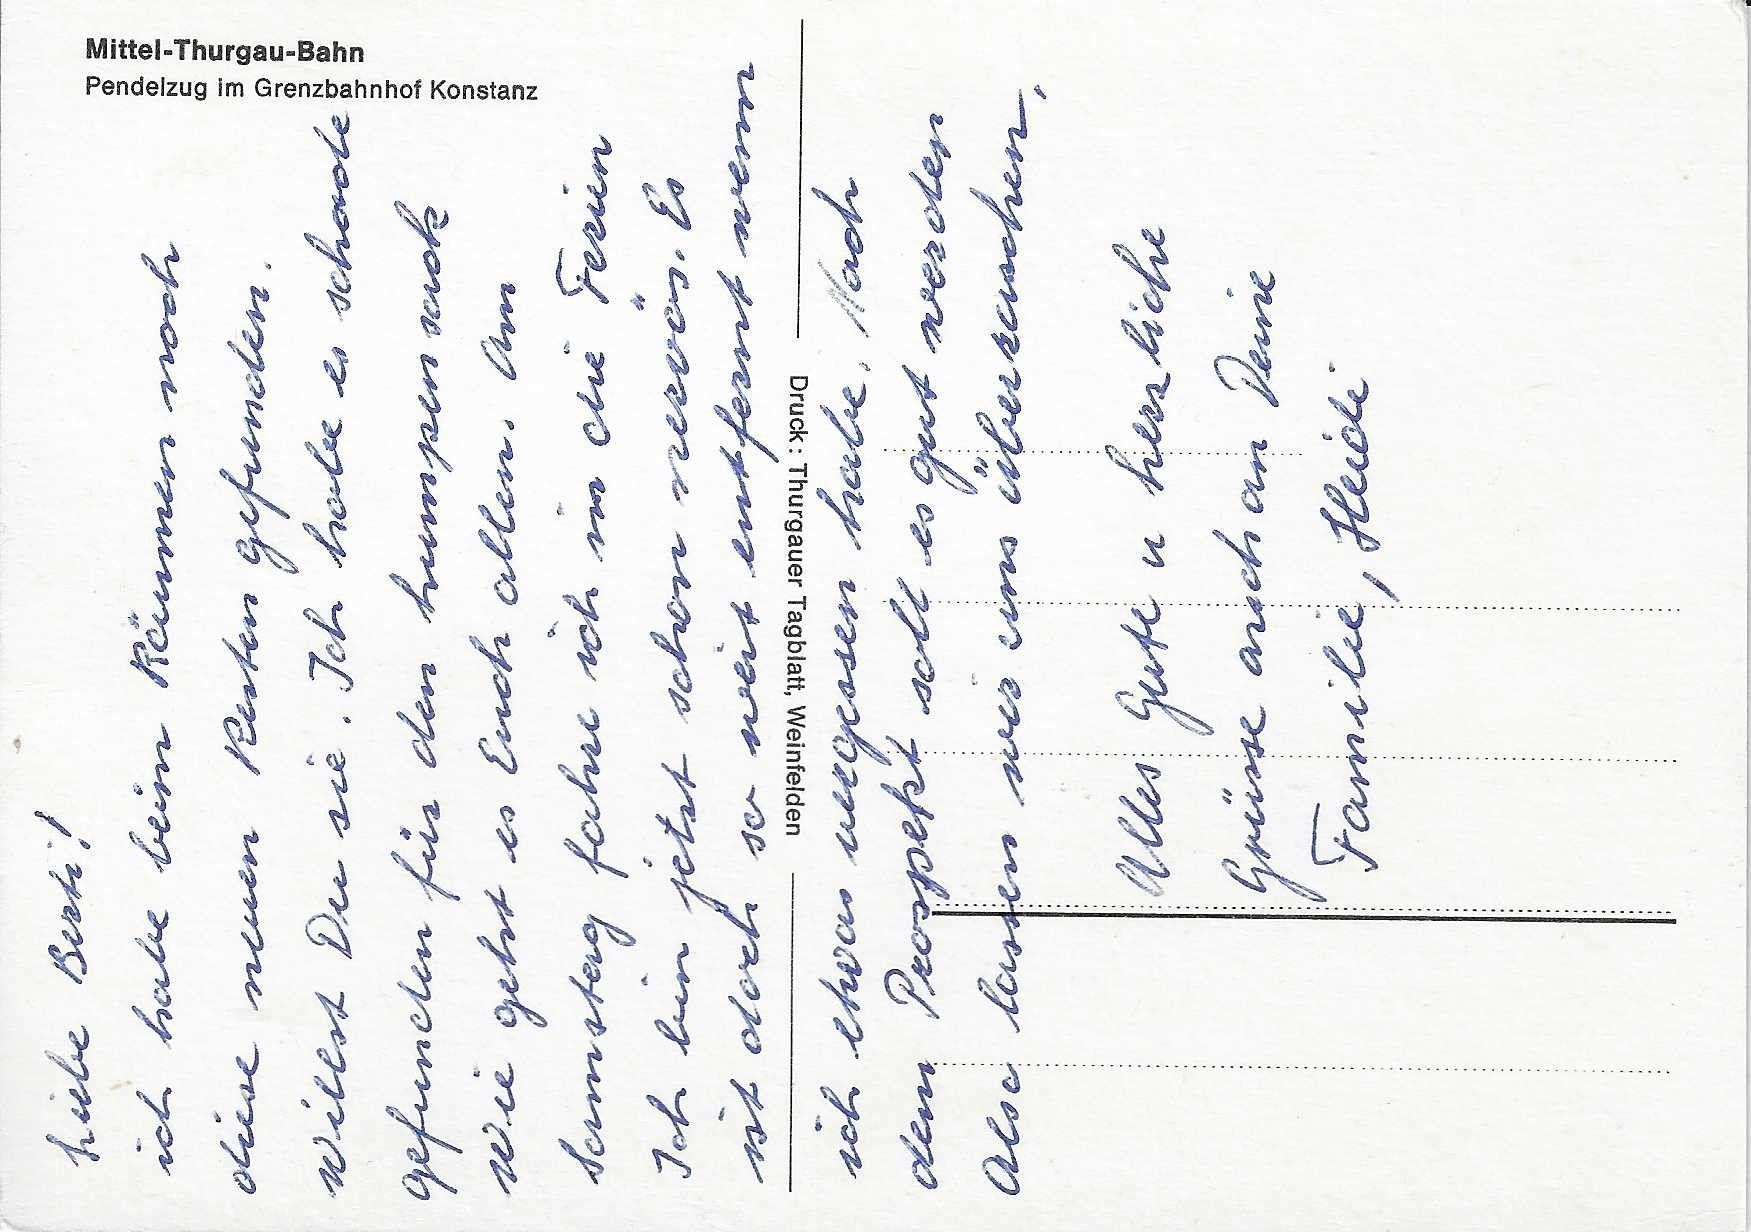 Mittel-Thurgau-Bahn
Pendelzug im Grenzbahnhof Konstanz
Druck: Thurgauer Tagblatt, Weinfelden
Liebe Berti!
ich habe beim Räumen noch
diese neuen Karten gefunden.
willst Du sie. Ich habe es schade
gefunden für den Lumpensack
wie geht es Euch allen. Am
Samstag fahre ich in die Ferien
Ich bin jetzt schon nervös. Es
ist doch so weit entfernt wenn
ich etwas vergessen habe. Nach
dem Prospekt soll es gut werden
Also lassen wir uns überraschen,
Alles Gute u herzliche
Grüsse auch an Deine
Familie, Heidi